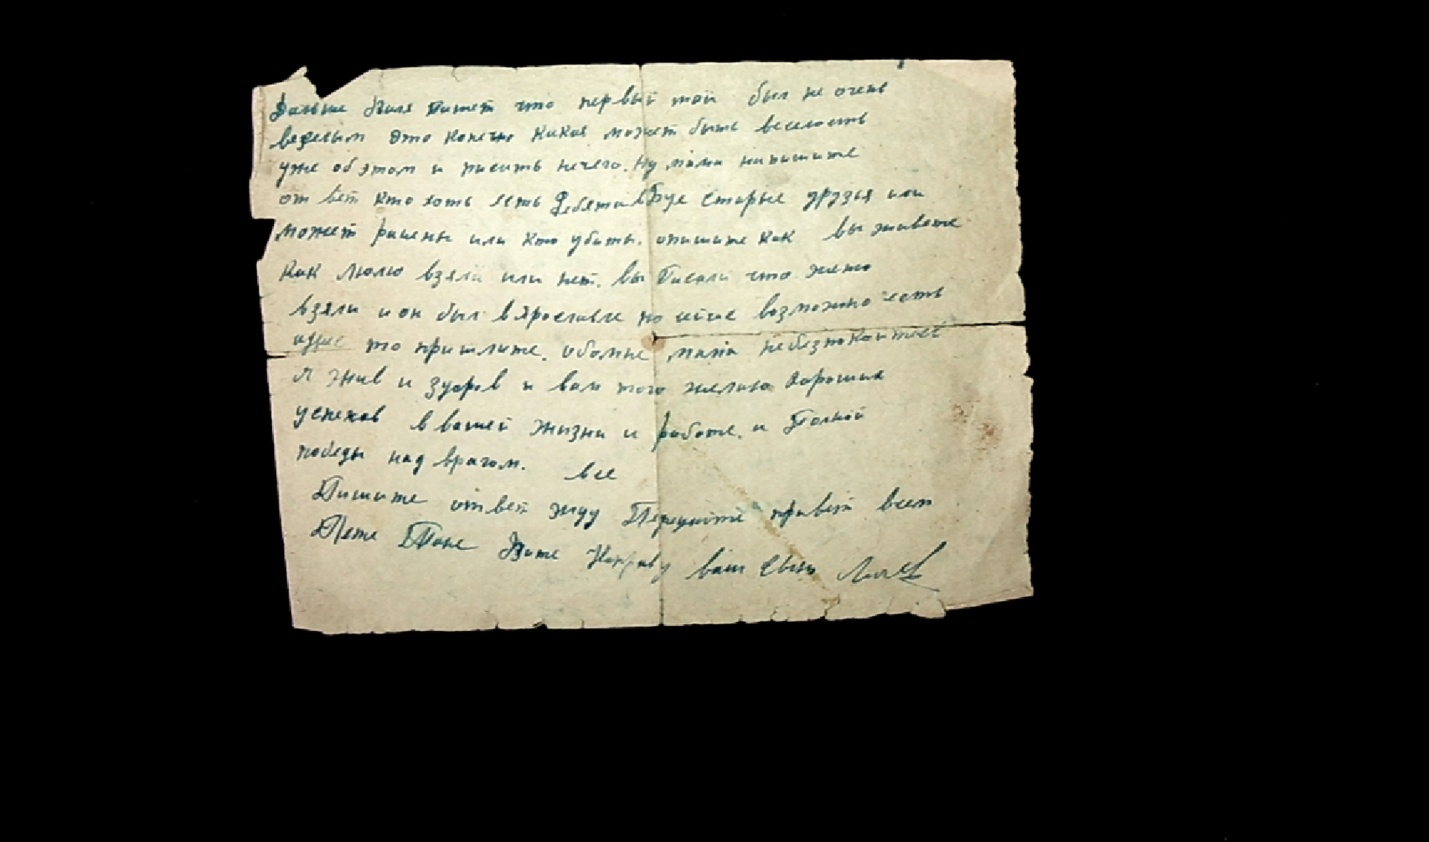 дальше Валя пишет что первый май был не очень
веселым это конечно какая может быть веселость
уже об этом и писать нечего. Ну мама напишите
ответ кто хоть есть старые друзья или
может ранены или кто убиты. опишите как вы живете
как взяли или нет. вы писали что
взяли и он был в Ярославле но возможно есть
адрес то пришлите. обомне мама небезпокойтесь
я жив и здоров и вам того желаю хороших
успехов в вашей жизни и работе. и Полной
победы над врагом. все
Пишите ответ жду Передайте привет всем
Пете Тоне Вите ваш сын